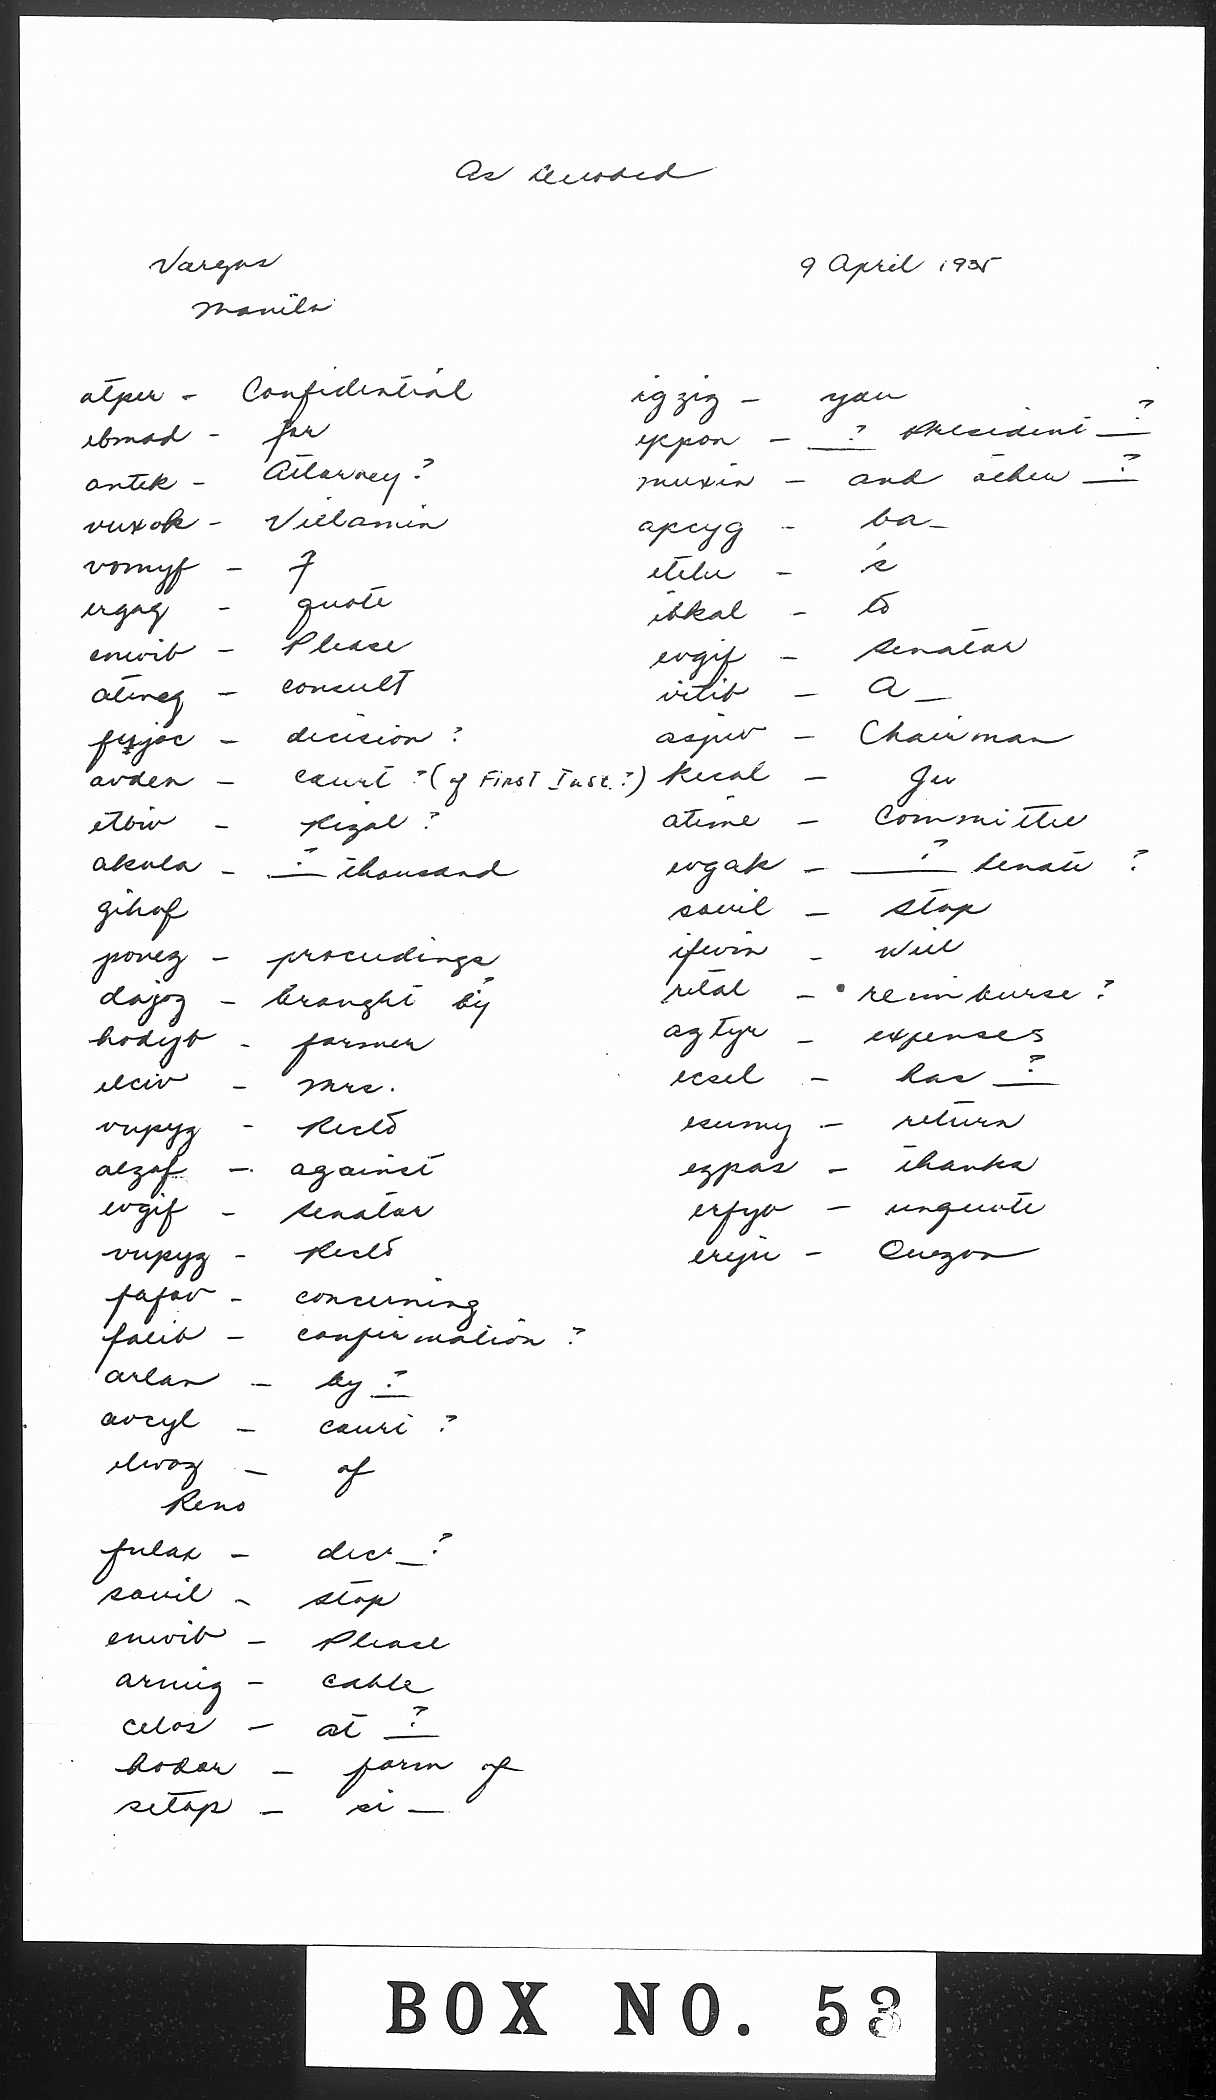 As decoded
Vargas
Manila
9 April 1935
atper - Confidential
ebmad - for
antek - Attorney?
vuxok - Villamin
vomyf - F
ergag - quote
enwib - Please
atineg - consult
decision?
avden - court? (of First Inst.?)
etbiv - Rizal?
akula - __?__ thousand
gihof
poveg - proceedings
dajog - brought by
hodyb - farmer
elciv - Mrs.
vupyg - Recto
aezaf - against
evgif - senator
vupyg - Recto
fafav - concerning
faeib - confirmation?
arlan - by __?__
avcyl - court?
elwoz - of
Reno
fulax - dec__?
sovil - stop
enwib - Please
armig - cable
celos - at __?__
hodar - form of
setap - si__
igzig - you
expon - __?__ President __?__
muxin - and other __?__
apcyg - ba__
etelu - is
ibkal - to
evgif - senator
vitib - a__
asjuv - Chairman
kecal - Ju
atime - Committee
evgak - __?__ Senate ?
sovil - stop
ifwin - will
retal - reimburse?
agtyr - expenses
ecsel - has __?__
esumy - return
egpas - thanks
erfyv - unquote
ereju - Quezon
BOX NO. 53